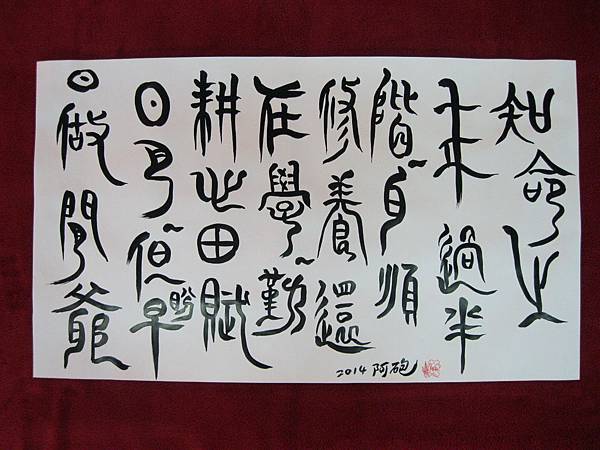 知命之
年過半
階~耳順
修養還
在學~勤
耕心田賦
日月~但盼早
日做閒爺
2014 阿砲